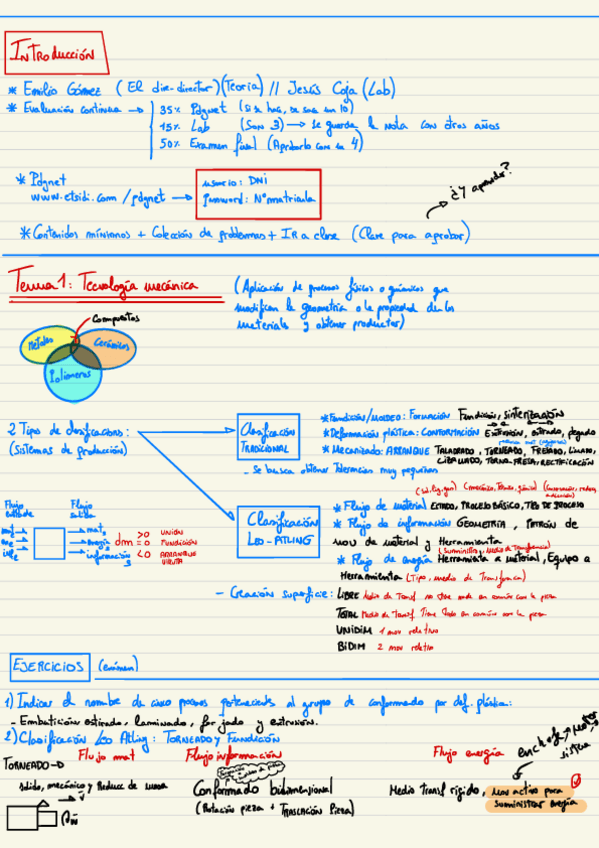 Introducción
* Emilio Gómez ( El dire-director) (Teoría) // Jesús Caja (Lab)
* Evaluación continua → 35% Pdgnet (si se hace, se saca un 10)
15% Lab (Son 3) → se guarda la nota con otros años
50% Examen final (Aprobarlo con un 4)
* Pdgnet
www.etsidi.com /pdgnet →
usuario: DNI
password: Nº matricula
¿Y aprender?
* Contenidos mínimos + Colección de problemas + IR a clase (Clave para aprobar)
Tema 1: Tecnología mecánica
(Aplicación de procesos físicos o químicos que
modifican la geometría o la propiedad de los
materiales y obtener productos)
Compuestos
Metales
Cerámicos
Polímeros
2 Tipos de clasificaciones:
(Sistemas de producción)
Clasificación
TRADICIONAL
* Fundición/MOLDEO: FORMACIÓN Fundición, sinterización
* Deformación plástica: CONFORMACIÓN Extrusión, estirado, plegado
* Mecanizado: ARRANQUE TALADRADO, TORNEADO, FRESADO, LIMADO,
CIZALLADO, TORNO-FRESA, RECTIFICACIÓN
- Se busca obtener tolerancias muy pequeñas
Clasificación
LEO-ATLING
* Flujo de material ESTADO, PROCESO BÁSICO, TIPO DE PROCESO
* Flujo de información GEOMETRÍA, PATRÓN DE
mov de material y Herramienta
(Suministro y Medio de Transferencia)
* Flujo de energía Herramienta a material, Equipo a
Herramienta (Tipo, medio de Transferencia)
Flujo
entrada
Flujo
salida
mat
ene
info
mat
energía
información
dm
>0 UNIÓN
=0 FUNDICIÓN
<0 ARRANQUE
VIRUTA
- Creación superficie: LIBRE Medio de Transf no tiene nada en común con la pieza
TOTAL Medio de Transf. Tiene todo en común con la pieza
UNIDIM 1 mov relativo
BIDIM 2 mov relativo
EJERCICIOS (exámen)
1) Indicar el nombre de cinco procesos pertenecientes al grupo de conformado por def. plástica:
- Embutición estirado, laminado, forjado y extrusión.
2) Clasificación Leo Atling: TORNEADO y FUNDICIÓN
Flujo mat
Flujo información
Flujo energía
enchufe, motor,
sistema
TORNEADO →
Sólido, mecánico y Reducc de masa
Conformado bidimensional
(Rotación pieza + TRASLACIÓN Pieza)
Medio Transf rígido,
suministrar energía